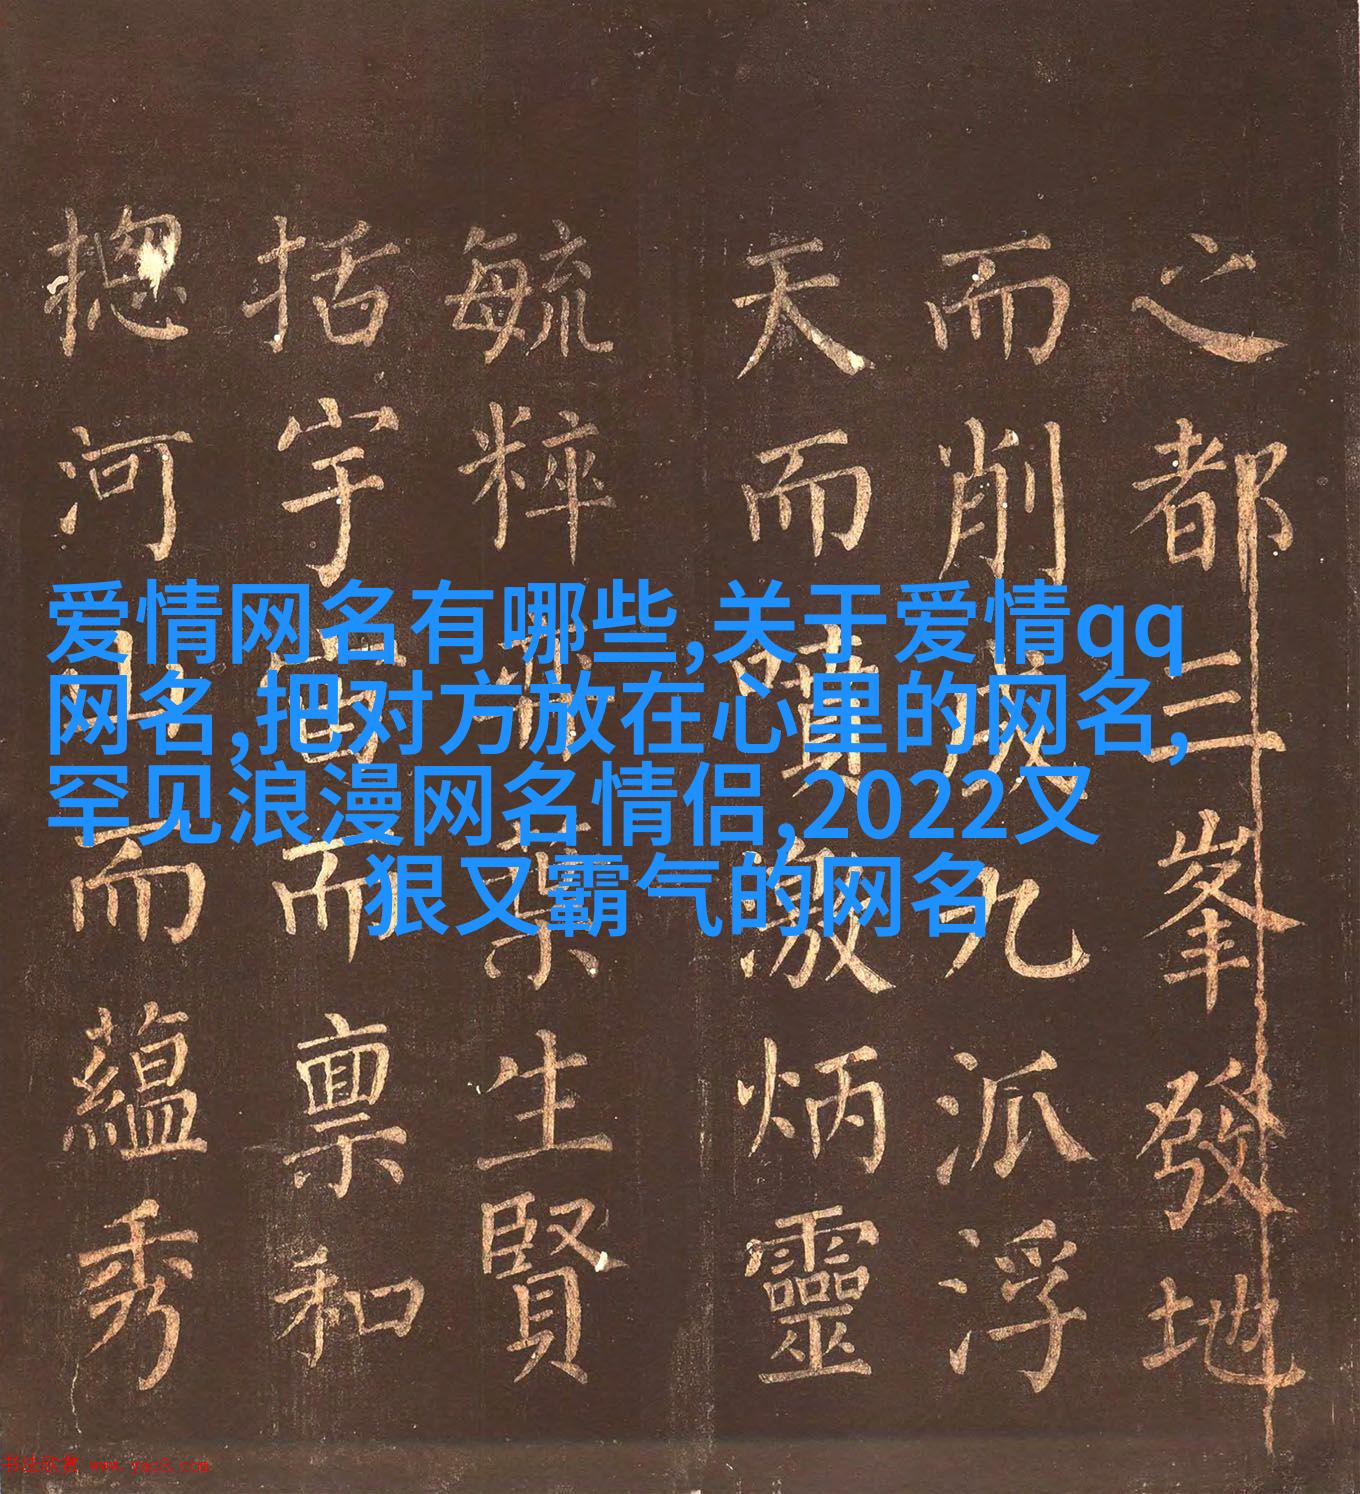 爱情网名有哪些,关于爱情qq
网名,把对方放在心里的网名,
罕见浪漫网名情侣,2022又
狠又霸气的网名
之都三峯發地
而削成九派浮
天而噴激炳靈
毓粹生賢
括宇宙而禀和
揔河而蘊秀
书法欣赏 www.yac8.com